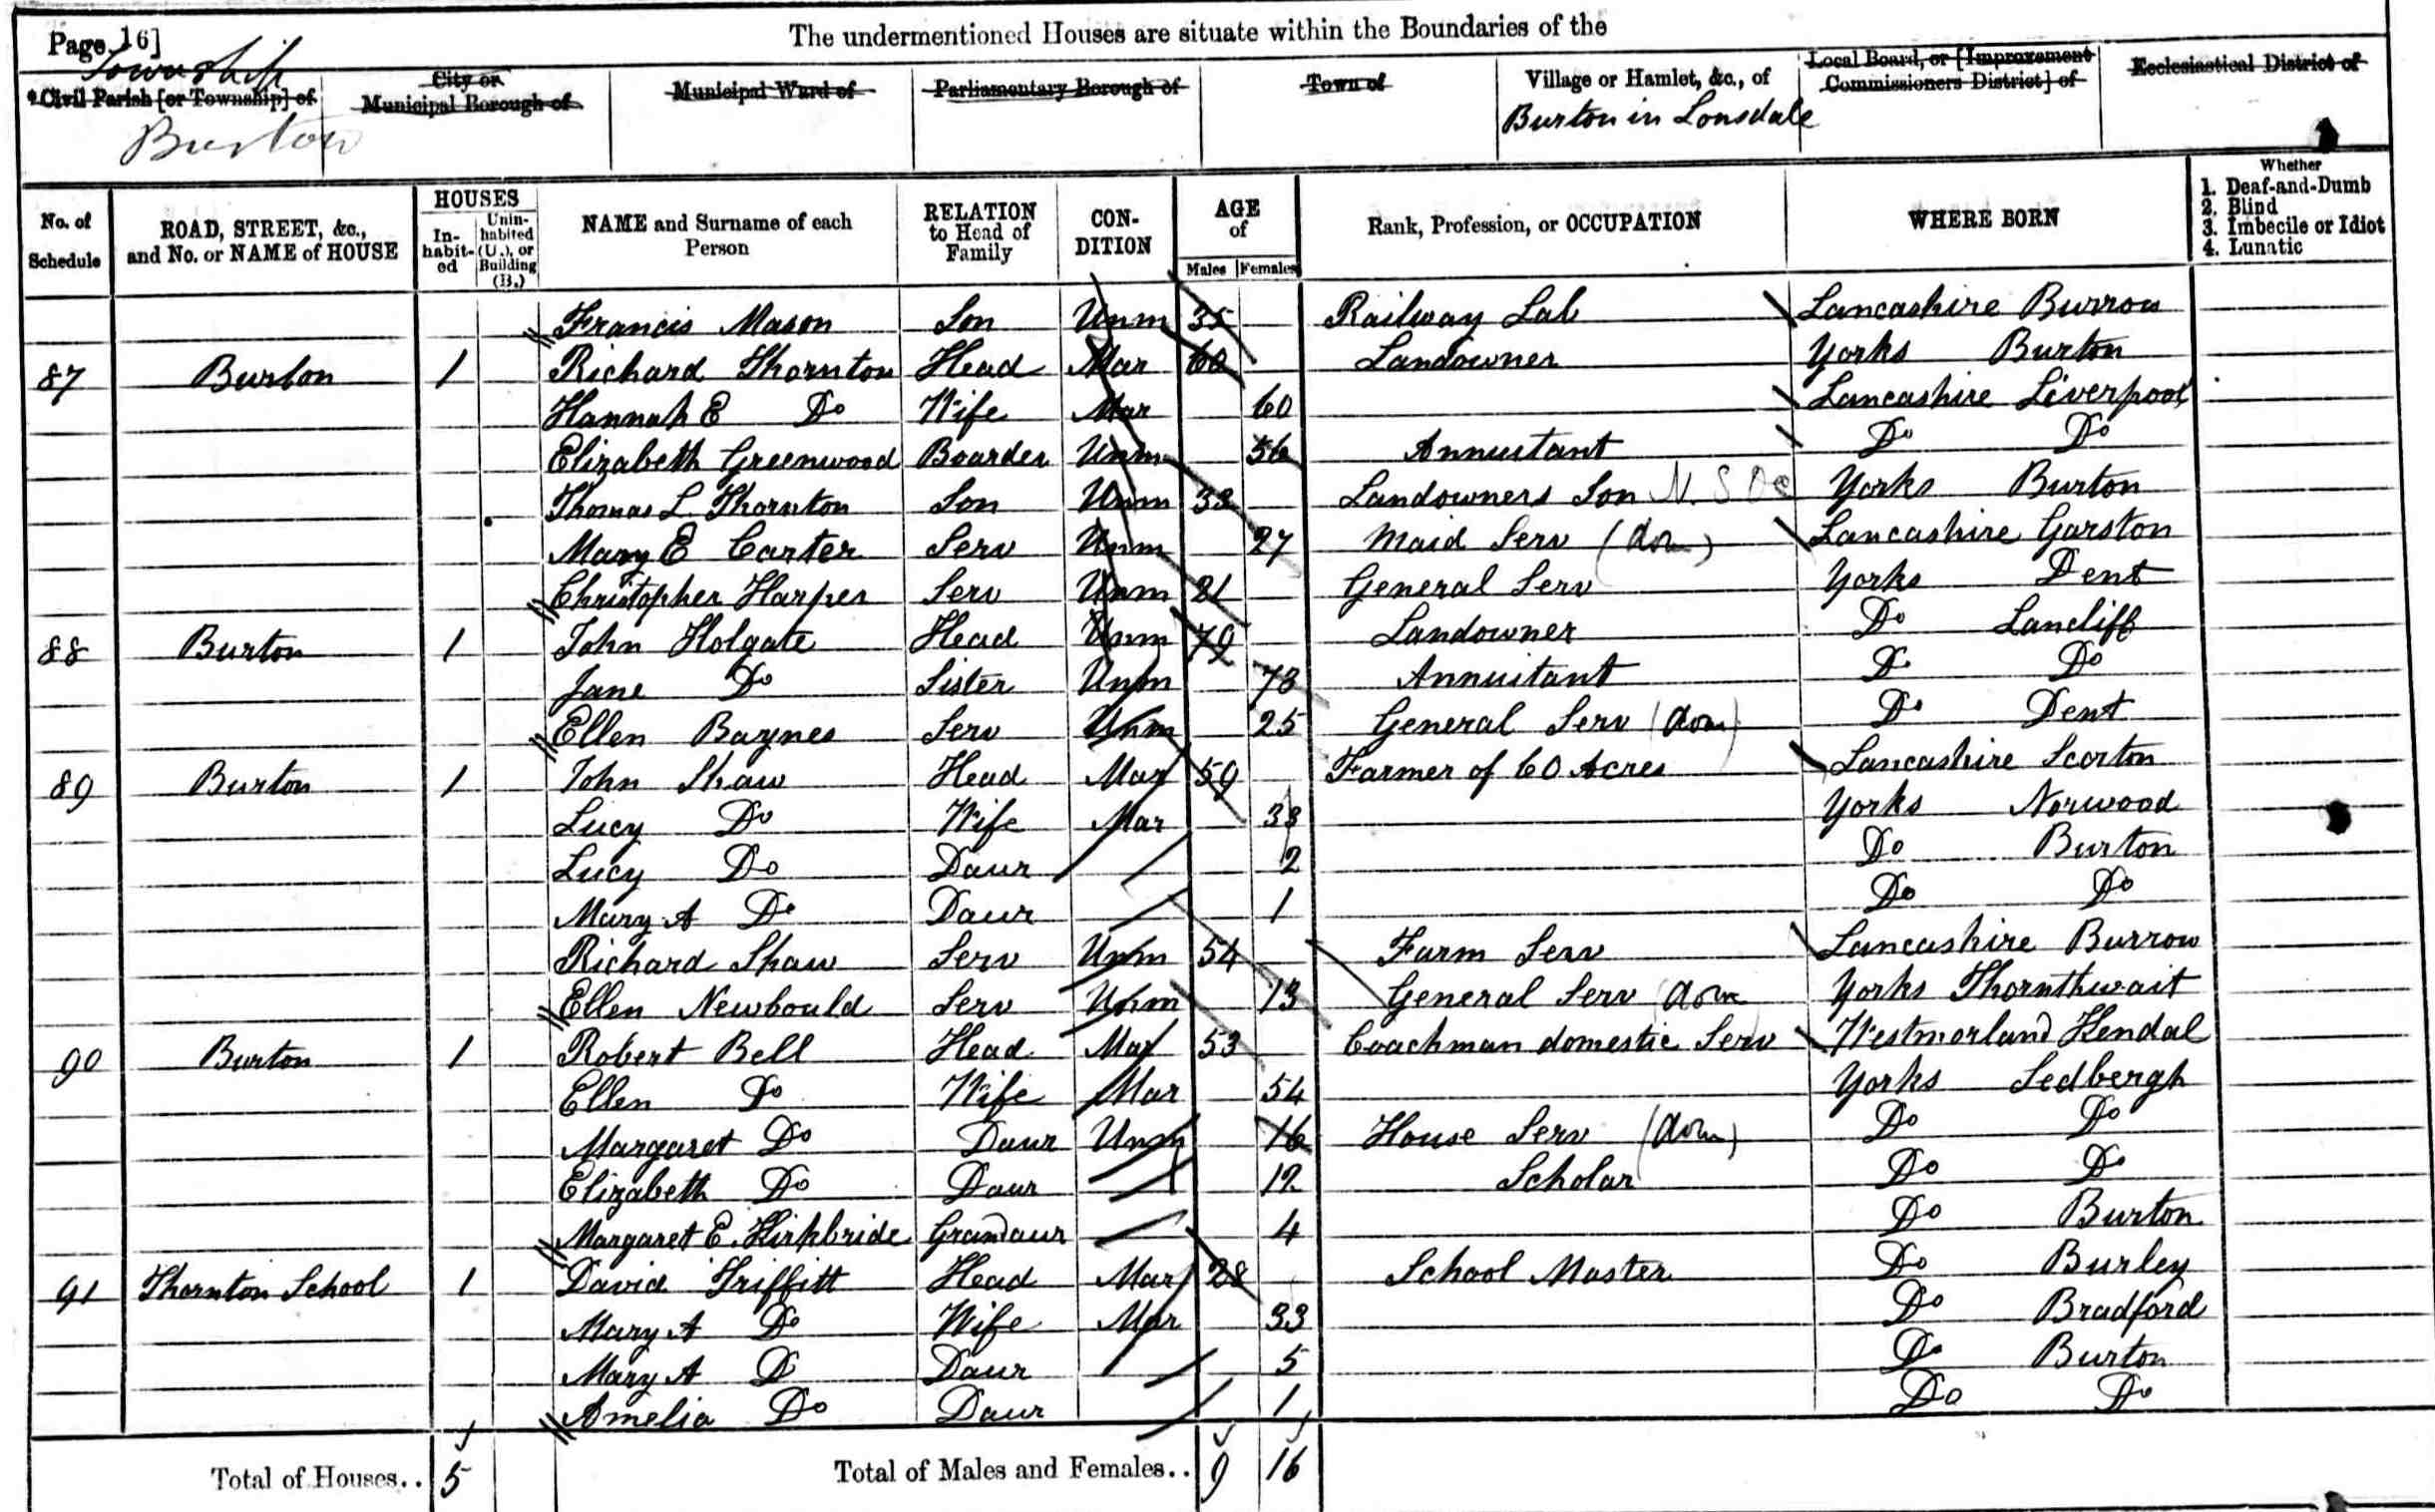 Page 16]
The undermentioned Houses are situate within the Boundaries of the
Township
Civil Parish [or Township] of
Burton
City or
Municipal Borough of
Municipal Ward of
Parliamentary Borough of
Town of
Village or Hamlet, &c., of
Burton in Lonsdale
Local Board, or [Improvement
Commissioners District] of
Ecclesiastical District of
No. of
Schedule
ROAD, STREET, &c.,
and No. or NAME of HOUSE
HOUSES
In-
habit-
ed
Unin-
habited
(U.), or
Building
(B.)
NAME and Surname of each
Person
RELATION
to Head of
Family
CON-
DITION
AGE
of
Males Females
Rank, Profession, or OCCUPATION
WHERE BORN
Whether
1. Deaf-and-Dumb
2. Blind
3. Imbecile or Idiot
4. Lunatic
Francis Mason Son Unm 35 Railway Lab Lancashire Burrow
87 Burton 1 Richard Thornton Head Mar 60 Landowner Yorks Burton
Hannah E Do Wife Mar 60 Lancashire Liverpool
Elizabeth Greenwood Boarder Unm 56 Annuitant Do Do
Thomas L. Thornton Son Unm 33 Landowners Son Yorks Burton
Mary E Carter Serv Unm 27 Maid Serv (dom) Lancashire Garston
Christopher Harper Serv Unm 21 General Serv Yorks Dent
88 Burton 1 John Holgate Head Unm 79 Landowner Do Lancliff
Jane Do Sister Unm 73 Annuitant Do Do
Ellen Baynes Serv Unm 25 General Serv (dom) Do Dent
89 Burton 1 John Shaw Head Mar 59 Farmer of 60 Acres Lancashire Scorton
Lucy Do Wife Mar 33 Yorks Norwood
Lucy Do Daur 2 Do Burton
Mary A Do Daur 1 Do Do
Richard Shaw Serv Unm 54 Farm Serv Lancashire Burrow
Ellen Newbould Serv Unm 13 General Serv (dom Yorks Thornthwait
90 Burton 1 Robert Bell Head Mar 53 Coachman domestic Serv Westmorland Kendal
Ellen Do Wife Mar 54 Yorks Sedbergh
Margaret Do Daur Unm 16 House Serv (dom) Do Do
Elizabeth Do Daur 12 Scholar Do Do
Margaret E. Kirkbride Grandaur 4 Do Burton
91 Thornton School 1 David Triffitt Head Mar 28 School Master Do Burley
Mary A Do Wife Mar 33 Do Bradford
Mary A D Daur 5 Do Burton
Amelia Do Daur 1 Do Do
Total of Houses.. 5 Total of Males and Females.. 9 16